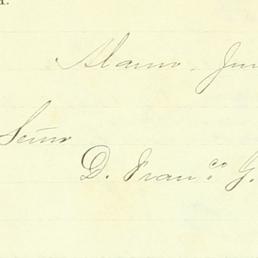 Alamo, Jun
Señor
D. Franco. G.